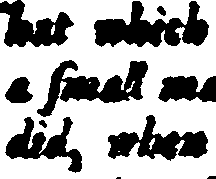 but which
a ſmall
did, when